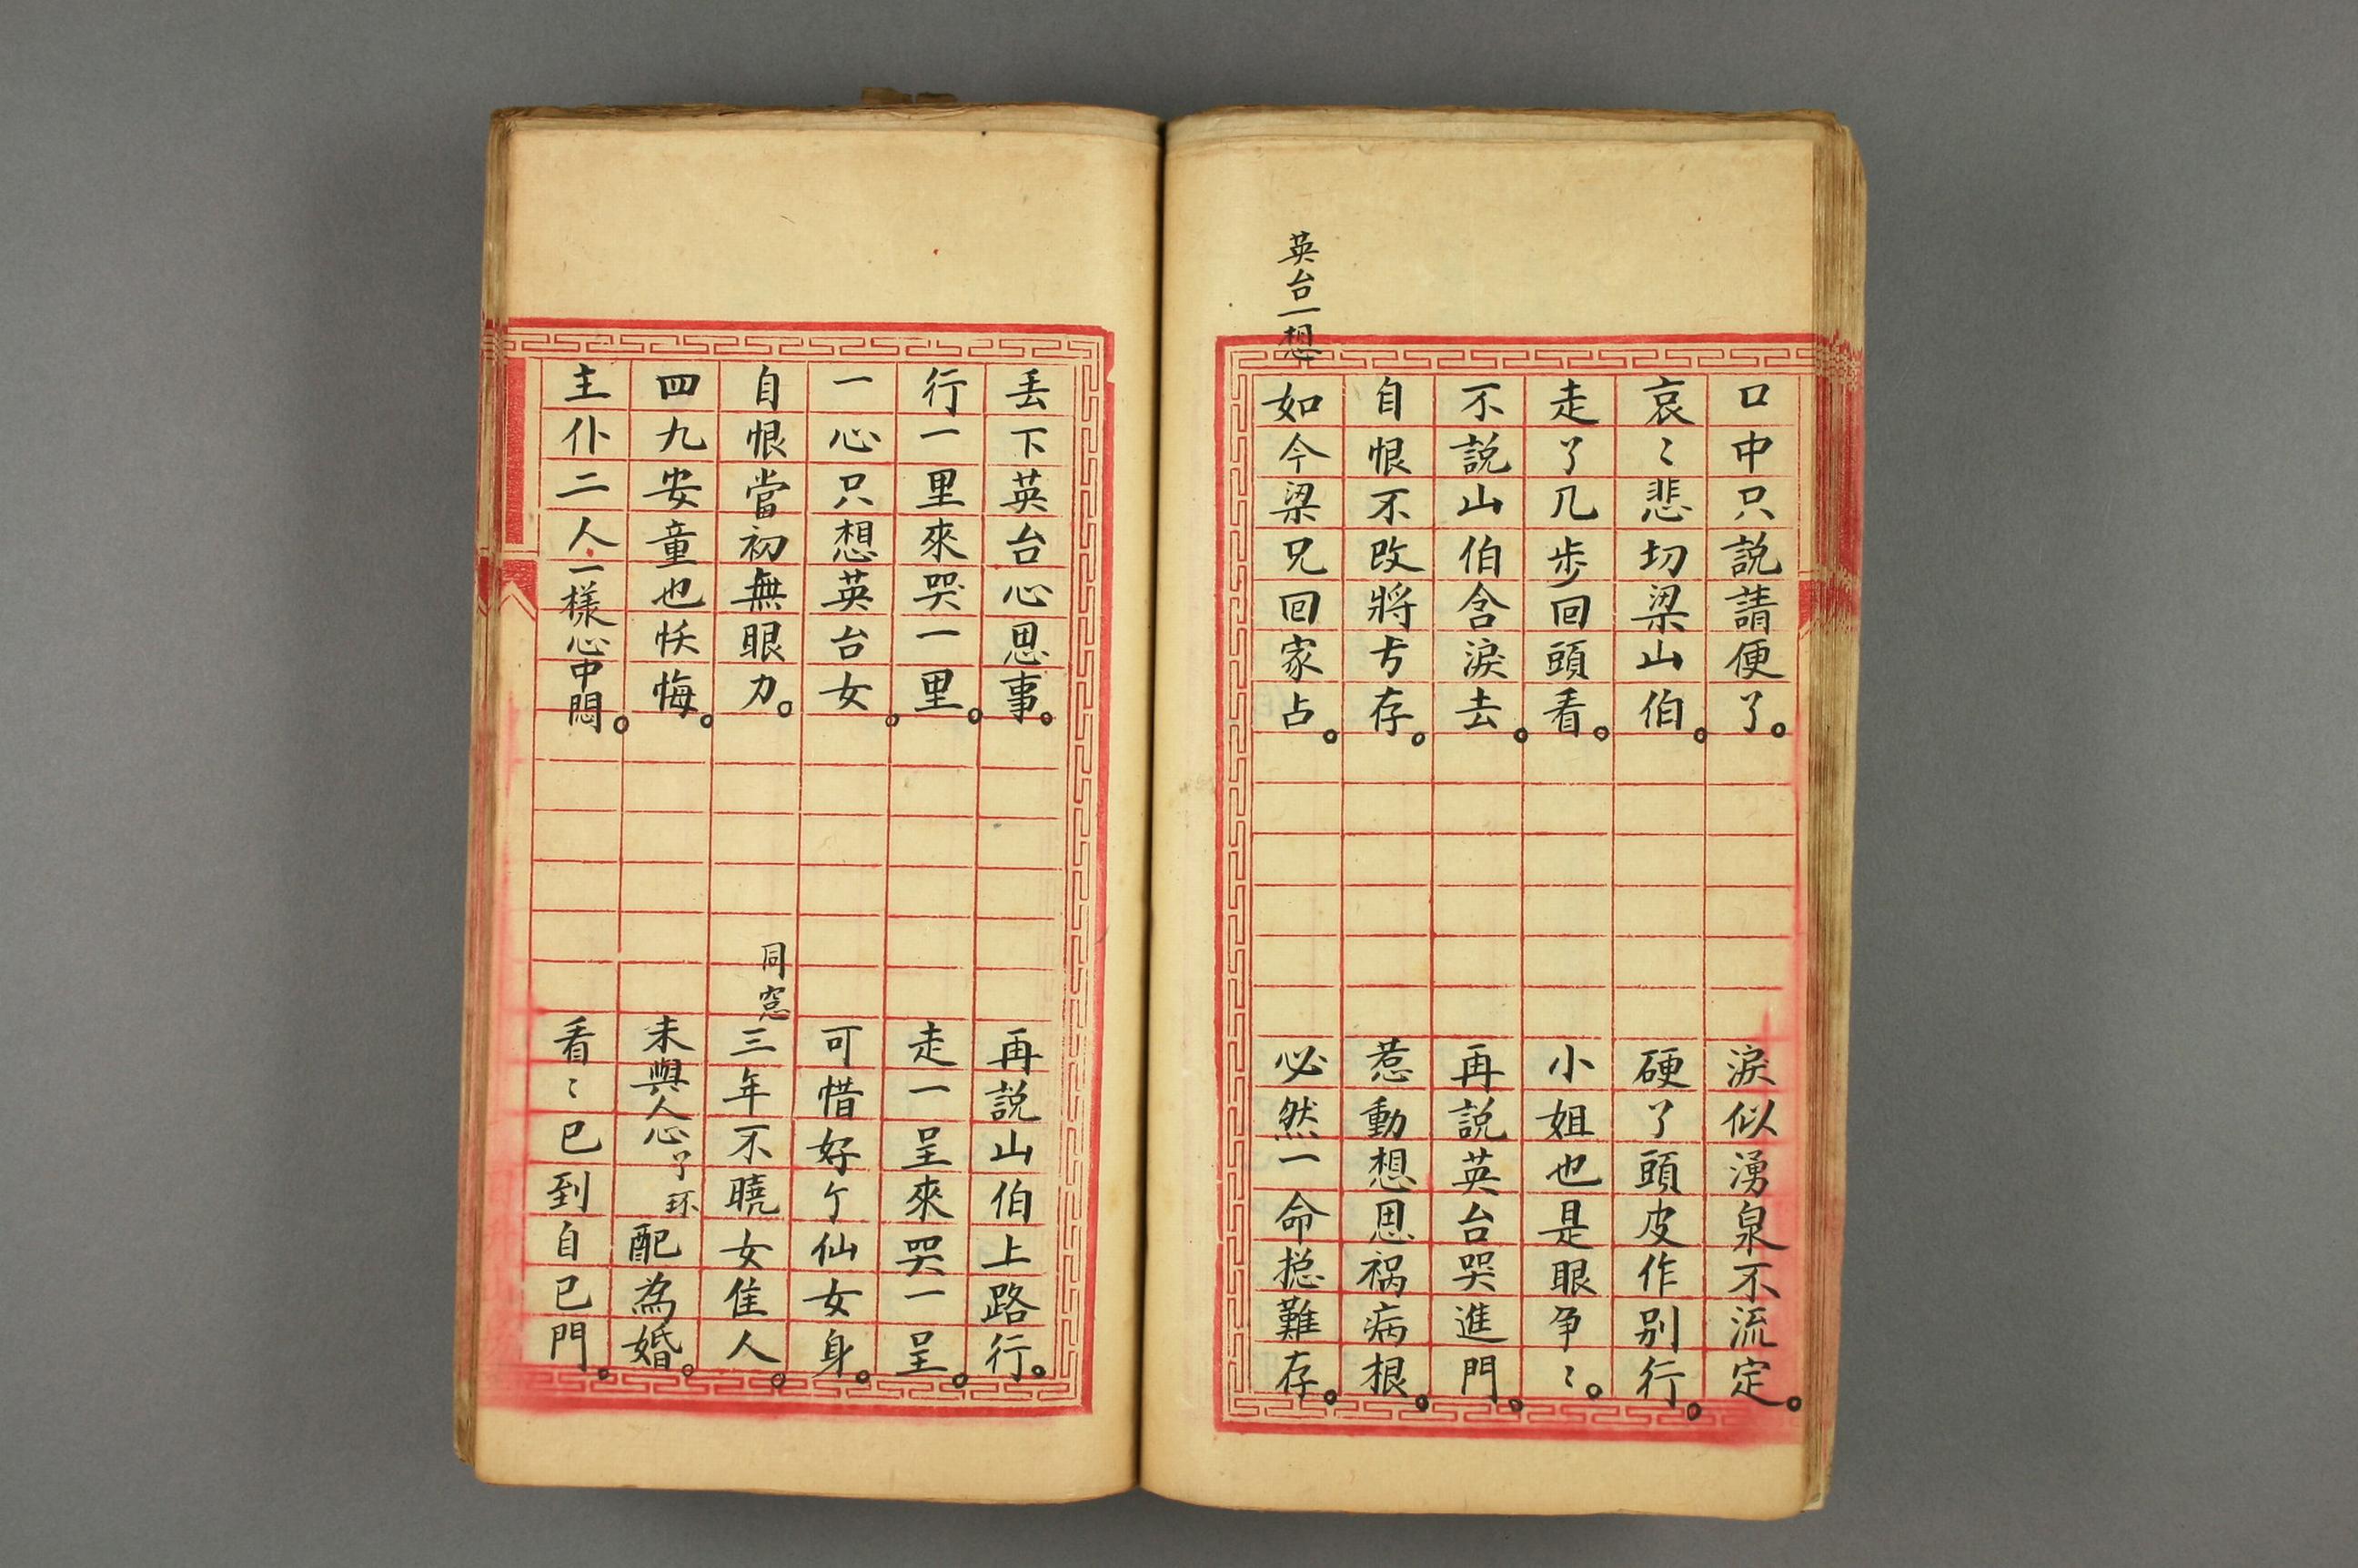 口中只説請便了。淚似湧泉不流定。
哀〻悲切梁山伯。硬了頭皮作别行。
走了几步回頭看。小姐也是眼争〻。
不説山伯含淚去。再説英台哭進門。
自恨不改將亐存。惹動想思禍病根。
英台一想
如今梁兄回家占。必然一命捴難存。
丢下英台心思事。再説山伯上路行。
行一里來哭一里。走一呈來哭一呈。
一心只想英台女。可惜好亇仙女身。
自恨當初無眼力。同窓三年不曉女隹人。
四九安童也恢悔。未與人心了环配為婚。
主仆二人一樣心中悶。看〻已到自已門。